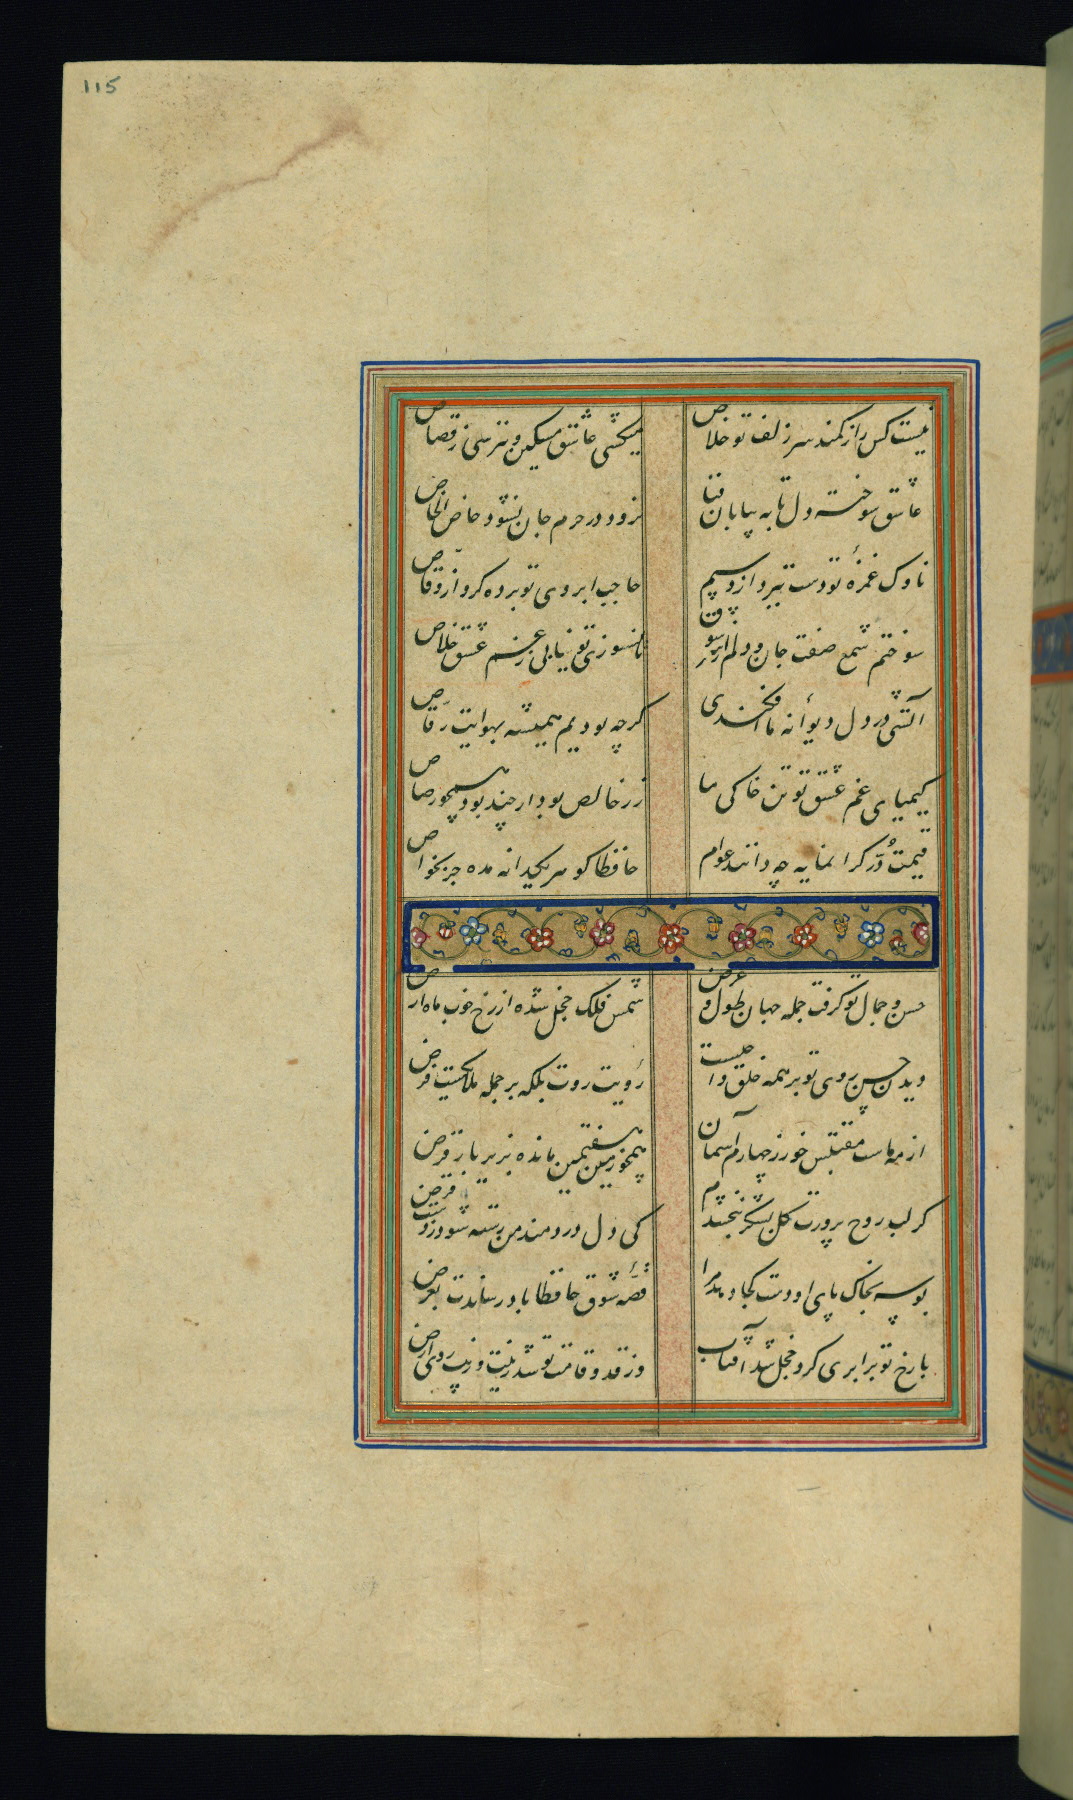 115
نیست کس را ز کمند سر زلف تو خلاص
میکشی عاشق مسکین و نترسی ز قصاص
عاشق سوخته دل تا به بیابان فنا
نرود در حرم جان نشود خاص الخاص
ناوک غمزهٔ تو دست ببرد از رستم
حاجب ابروی تو برده کرو از وقاص
سوختم شمع صفت جان و دلم از سر شوق
تا نسوزی تو نیابی ز غم عشق خلاص
آتشی در دل دیوانهٔ ما افکندی
کرچه بودیم همیشه بهوایت رقاص
کیمیای غم عشق تو تن خاکی ما
زر خالص بود ار چند بود همچو رصاص
قیمت دُر کرانمایه چه دانند عوام
حافظا کوهر یکدانه مده جز بخواص
حسن و جمال تو کرفت جمله جهان طول و عرض
شمس فلک خجل شده از رخ خوب ماه ارض
دیدن حسن روی تو بر همه خلق واجبست
رؤیت روت بلکه بر جمله ملایکست فرض
از مه ماست مقتبس خور ز چهارم آسمان
همچو زمین هفتمین مانده بزیر بار قرض
کر لب روح پرورت کل بشکر نبخشدم
کی دل دردمند من رسته شود ز دست قرض
بوسه بخاک پای او دست کجا دهد ترا
قصهٔ شوق حافظا باد رساندت بعرض
با رخ تو برابری کرد خجل شد آفتاب
وز قد و قامت تو شد زینت و زیب روی ارض